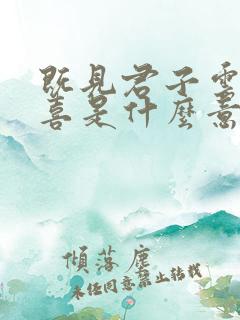 既見君子雲
喜是什麼意
傾落塵
未經同意禁止轉載